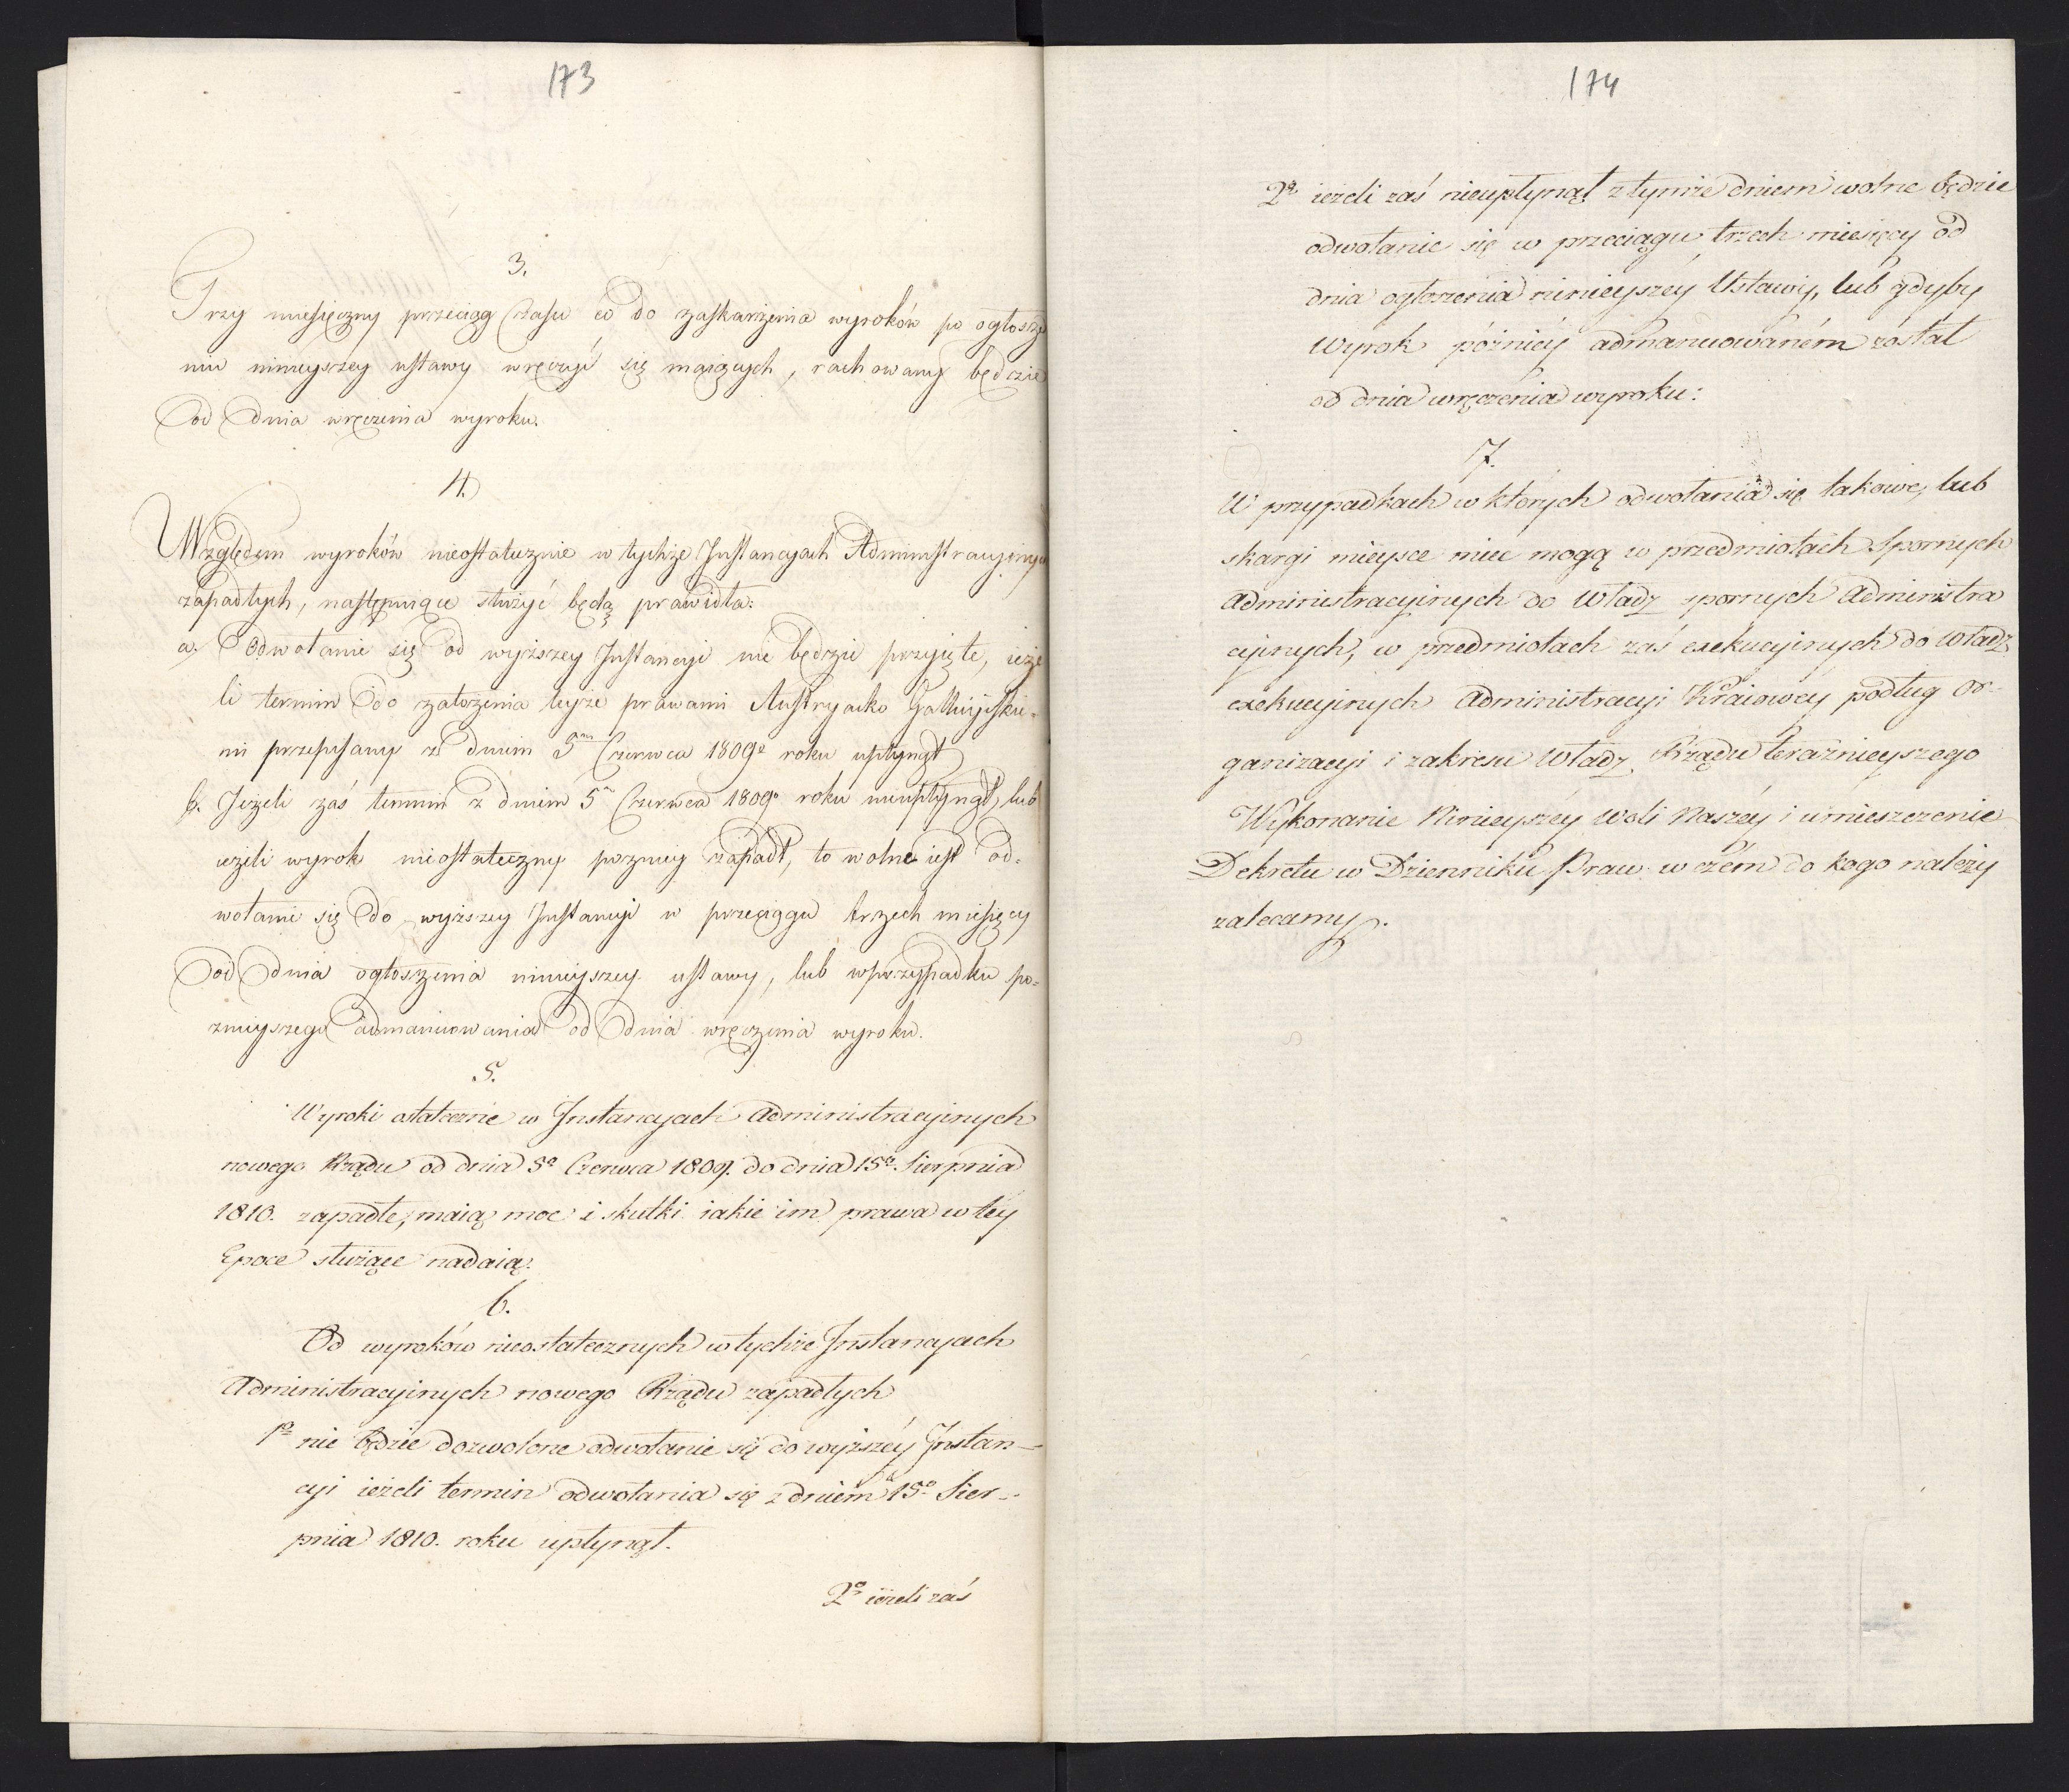 173
3.
Trzy miesięczny przeciąg Czasu co do zaskarżenia wyroków po ogłosze
niu ninieyszey ustawy wręczyć się maiących, rachowany będzie
od dnia wręczenia wyroku.
4.
Względem wyroków nieostatecznie w tychże Instancyach Administracyinych
zapadłych, następuiące służyć będą prawidła:
a, Odwołanie się od wyższey Instancyi nie będzie przyięte, ieże
li termin do założenia teyże prawami Austryacko Gallicyiskie-
mi przepisany z dniem 5m Czerwca 1809o roku upłynął
b. Jeżeli zaś termin z dniem 5m Czerwca 1809o roku nieupłynął, lub
ieżeli wyrok nieostateczny pozniey zapadł, to wolne iest od=
wołanie się do wyższey Instancyi w przeciągu trzech miesięcy
od dnia ogłoszenia ninieyszey ustawy, lub wprzypadku po=
znieyszego admanuowania od dnia wręczenia wyroku.
5.
Wyroki ostatecznie w Instancyach Administracyinych
nowego Rządu od dnia 5o Czerwca 1809. do dnia 15o Sierpnia
1810. zapadłe, maią moc i skutki iakie im prawa w tey
Epoce służące nadaią.
6.
Od wyroków nieostatecznych w tychże Instancyach
Administracyinych nowego Rządu zapadłych
1o nie będzie dozwolone odwołanie się do wyższéy Instan-
cyi ieżeli termin odwołania się z dniem 15o Sier-
pnia 1810. roku upłynął.
2o ieżeli zaś
174
2o ieżeli zaś nieupłynął z tymże dniem wolne będzie
odwołanie się w przeciągu trzech miesięcy od
dnia ogłoszenia ninieyszéy Ustawy, lub gdyby
wyrok pózniéy admanuowaném został
od dnia wręczenia wyroku:
7.
W przypadkach w których odwołania się takowe, lub
skargi mieysce mieć mogą w przedmiotach Spornych
Administracyinych do Władz spornych Administra
cyinych, w przedmiotach zaś exekucyinych do Władz
exekucyinych Administracyi Kraiowéy podług or-
ganizacyi i zakresu Władz Rządu teraznieyszego
Wykonanie Ninieyszéy woli Naszéy i umieszczenie
Dekretu w Dzienniku Praw w czém do kogo należy
zalecamy.